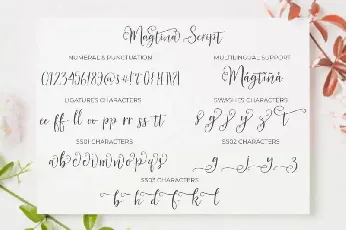 Magtina Script
NUMERAL & PUNCTUATION
MULTILINGUAL SUPPORT
Mágtiná
LIGATURES CHARACTERS
SWASHES CHARACTERS
ee ff ll oo pp rr ss tt
SS01 CHARACTERS
SS02 CHARACTERS
a b c d e v m n o p q s
g j y z
SS03 CHARACTERS
b h d f k t